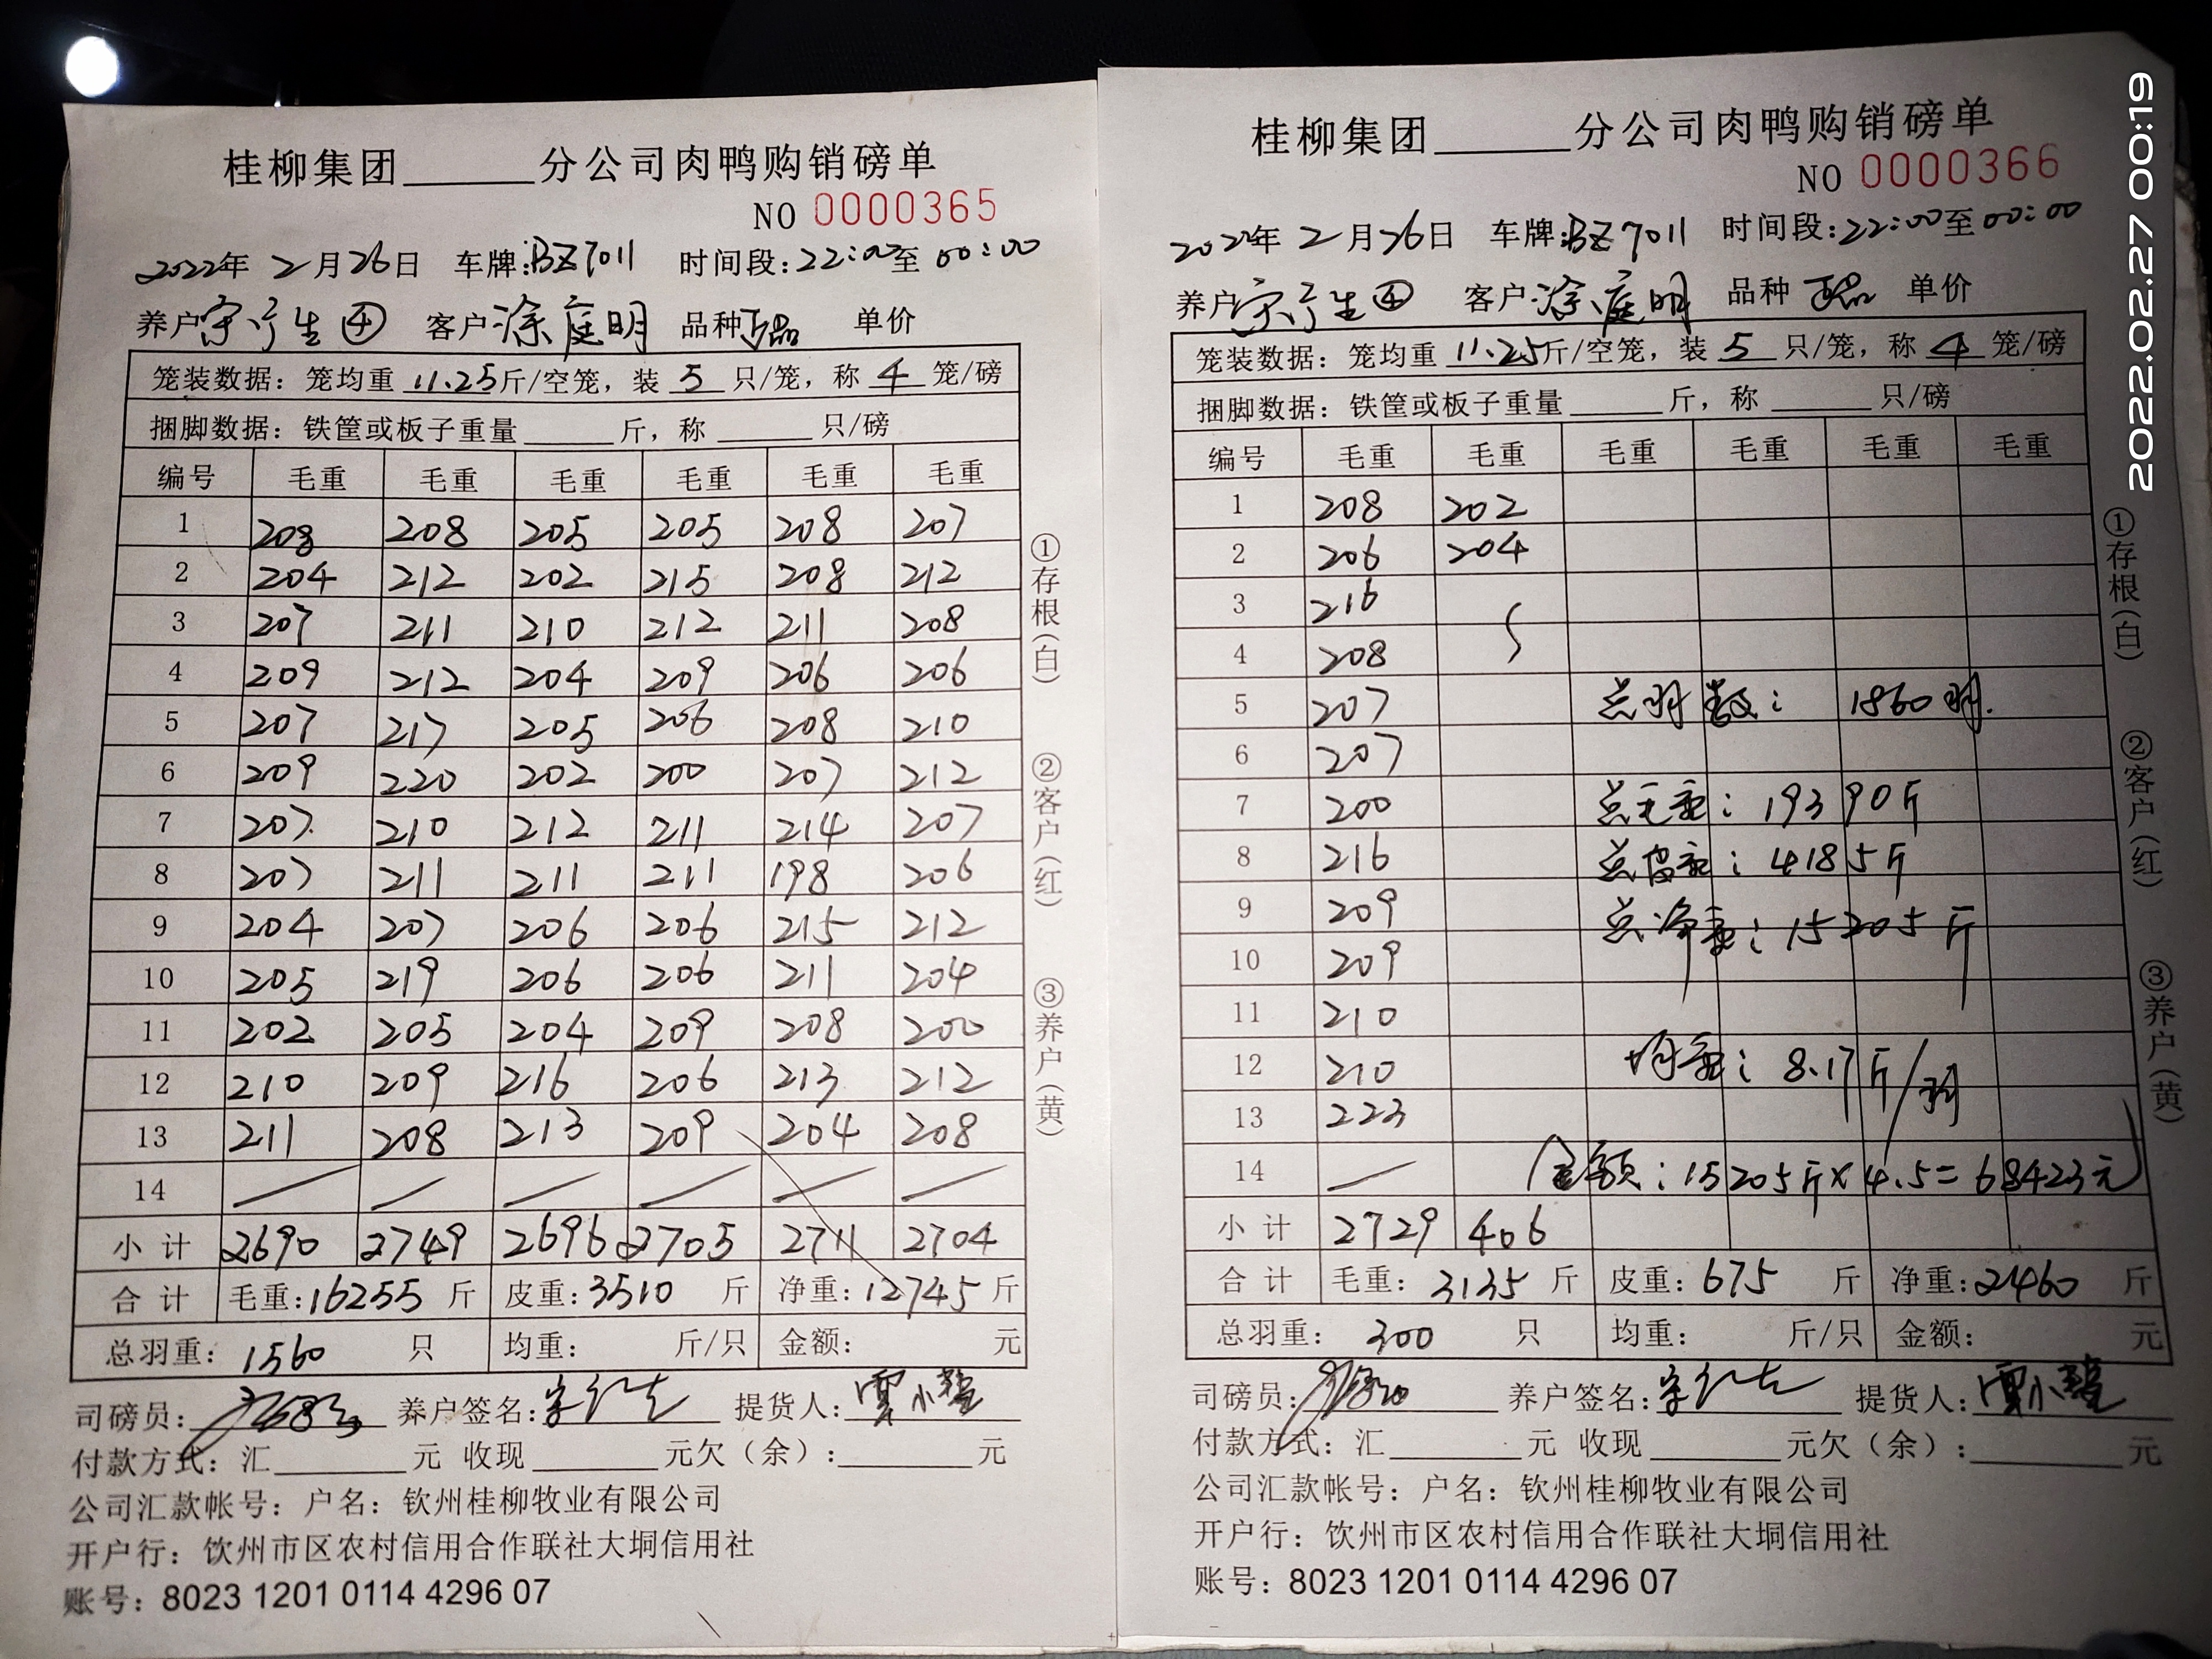 桂柳集团______分公司肉鸭购销磅单
NO 0000365
2022年 2月26日 车牌:BZ7011 时间段:22:00至00:00
养户 生④ 客户:涂庭明 品种 单价
笼装数据：笼均重 11.25斤/空笼，装 5 只/笼，称 4 笼/磅
捆脚数据：铁筐或板子重量______斤，称______只/磅
编号 毛重 毛重 毛重 毛重 毛重 毛重
1 208 208 205 205 208 207
2 204 212 202 215 208 212
3 207 211 210 212 211 208
4 209 212 204 209 206 206
5 207 217 205 206 208 210
6 209 220 202 200 207 212
7 207 210 212 211 214 207
8 207 211 211 211 198 206
9 204 207 206 206 215 212
10 205 219 206 206 211 204
11 202 205 204 209 208 200
12 210 209 216 206 213 212
13 211 208 213 209 204 208
14 / / / / / /
小计 2690 2749 2696 2705 2711 2704
合计 毛重:16255斤 皮重:3510斤 净重:12745斤
总羽重: 1560 只 均重: 斤/只 金额: 元
司磅员: 养户签名: 提货人:
付款方式: 汇______元 收现______元欠（余）:______元
公司汇款帐号: 户名: 钦州桂柳牧业有限公司
开户行: 饮州市区农村信用合作联社大垌信用社
账号: 8023 1201 0114 4296 07
①存根(白) ②客户(红) ③养户(黄)
桂柳集团______分公司肉鸭购销磅单
NO 0000366
2022年 2月26日 车牌:BZ7011 时间段:22:00至00:00
养户 生④ 客户:涂庭明 品种 单价
笼装数据：笼均重 11.25斤/空笼，装 5 只/笼，称 4 笼/磅
捆脚数据：铁筐或板子重量______斤，称______只/磅
编号 毛重 毛重 毛重 毛重 毛重 毛重
1 208 202
2 206 204
3 216
4 208
5 207 总羽数: 1860羽.
6 207
7 200 总毛重: 19390斤
8 216 总皮重: 4185斤
9 209 总净重: 15205斤
10 209
11 210
12 210 均重: 8.17斤/羽
13 223
14 — 金额: 15205斤×4.5=68423元
小计 2729 406
合计 毛重: 3135 斤 皮重: 675 斤 净重:2460 斤
总羽重: 300 只 均重: 斤/只 金额: 元
司磅员: 养户签名: 提货人:
付款方式: 汇______元 收现______元欠（余）:______元
公司汇款帐号: 户名: 钦州桂柳牧业有限公司
开户行: 饮州市区农村信用合作联社大垌信用社
账号: 8023 1201 0114 4296 07
①存根(白) ②客户(红) ③养户(黄)
2022.02.27 00:19